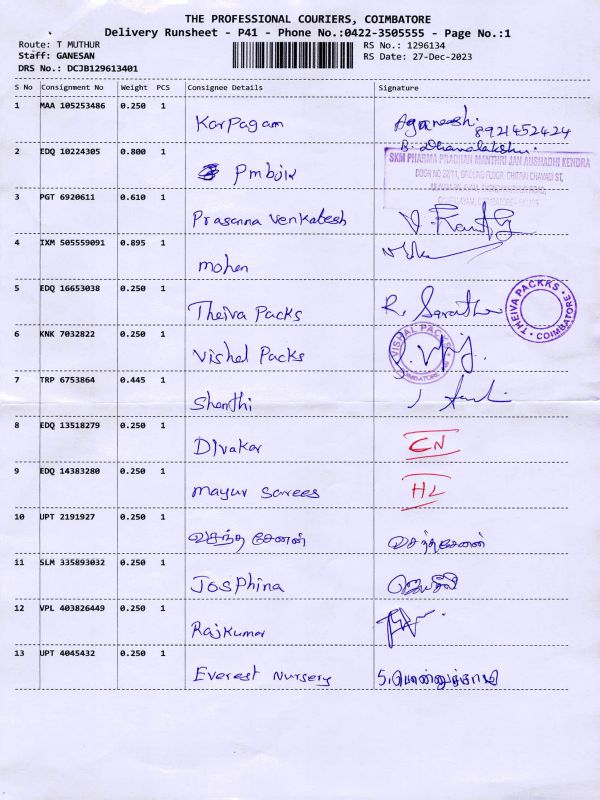 THE PROFESSIONAL COURIERS, COIMBATORE
Delivery Runsheet - P41 - Phone No.:0422-3505555 - Page No.:1
Route: T MUTHUR
RS No.: 1296134
Staff: GANESAN
RS Date: 27-Dec-2023
DRS No.: DCJB129613401
S No Consignment No Weight PCS Consignee Details Signature
1 MAA 105253486 0.250 1
Karpagam
8921452424
B. Dhanalakshmi
2 EDQ 10224305 0.800 1
SKM PHARMA PRADHAN MANTHRI JAN AUSHADHI KENDRA
3 PGT 6920611 0.610 1
Prasanna Venkatesh
4 IXM 505559091 0.895 1
mohen
5 EDQ 16653038 0.250 1
Theiva Packs
THEIVA PACKKS COIMBATORE
6 KNK 7032822 0.250 1
Vishal Packs
VISHAL PACKS COIMBATORE
7 TRP 6753864 0.445 1
Shanthi
8 EDQ 13518279 0.250 1
Divakar CN
9 EDQ 14383280 0.250 1
Mayur Sarees HL
10 UPT 2191927 0.250 1
வசந்த சேனன்
11 SLM 335893032 0.250 1
Josphina
12 VPL 403826449 0.250 1
Rajkumar
13 UPT 4045432 0.250 1
Everest Nursery